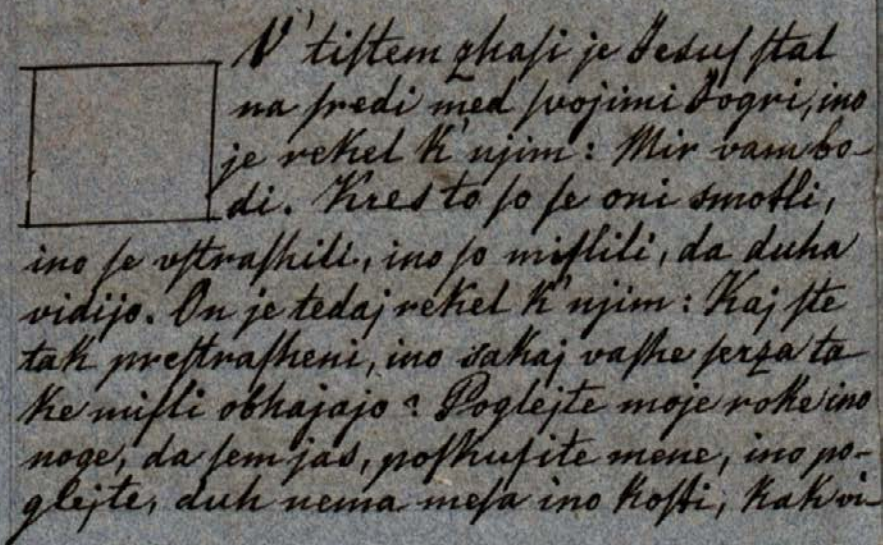 V' tiſtem zhaſi je Jesuſ ſtal
na ſredi med ſvojimi Jogri, ino
je rekel k' njim: Mir vam bo-
di. Kres to ſo ſe oni smotli,
ino ſe vſtraſhili, ino ſo miſlili, da duha
vidijo. On je tedaj rekel k' njim: Kaj ſte
tak preſtraſheni, ino sakaj vaſhe ſerza ta
ke miſli obhajajo? Poglejte moje roke ino
noge, da ſem jas, poſkuſite mene, ino po-
glejte, duh nema meſa ino koſti, kak vi-